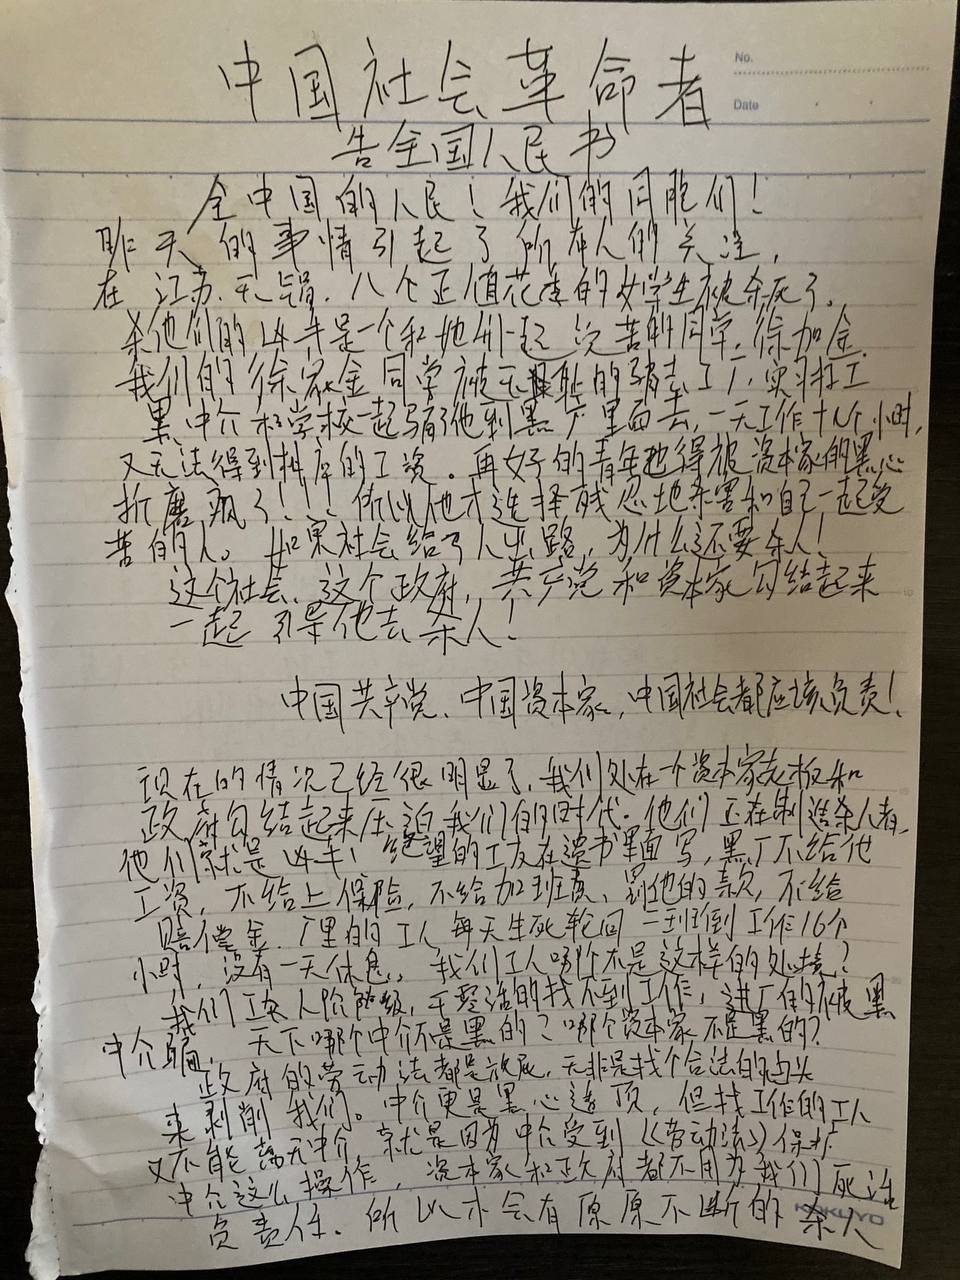 No.
Date
中国社会革命者
告全国人民书
全中国的人民！我们的同胞们！
昨天的事情引起了所有人的关注，
在江苏.无锡.八个正值花季的女学生被杀死了.
杀他们的凶手是一个和她们一起受苦的同学,徐加金.
我们的徐家金同学被无耻的骗去工厂,实习打工
黑中介和学校一起骗了他到黑厂里面去,一天工作十几个小时,
又无法得到相应的工资。再好的青年也得被资本家的黑心
折磨疯了！！！所以他才选择残忍地杀害和自己一起受
苦的人。如果社会给了人出路,为什么还要杀人！
这个社会、这个政府,共产党和资本家勾结起来
一起引导他去杀人！
中国共产党、中国资本家,中国社会都应该负责！
现在的情况已经很明显了,我们处在一个资本家老板和
政府勾结起来压迫我们的时代.他们正在制造杀人者,
他们就是凶手！绝望的工友在遗书里面写,黑厂不给他
工资,不给上保险,不给加班费、罚他的款,不给
赔偿金.厂里的工人每天生死轮回一班倒工作16个
小时,没有一天休息。我们工人哪个不是这样的处境？
我们工人阶级,干零活的找不到工作,进厂的被黑
中介骗,天下哪个中介不是黑的？哪个资本家不是黑的？
政府的劳动法都是放屁,无非是找个合法的由头
来剥削我们。中介更是黑心透顶,但找工作的工人
又不能离开中介,就是因为中介受到《劳动法》保护
中介这么操作,资本家和政府都不用为我们死活
负责任.所以才会有原原不断的杀人
KOKUYO